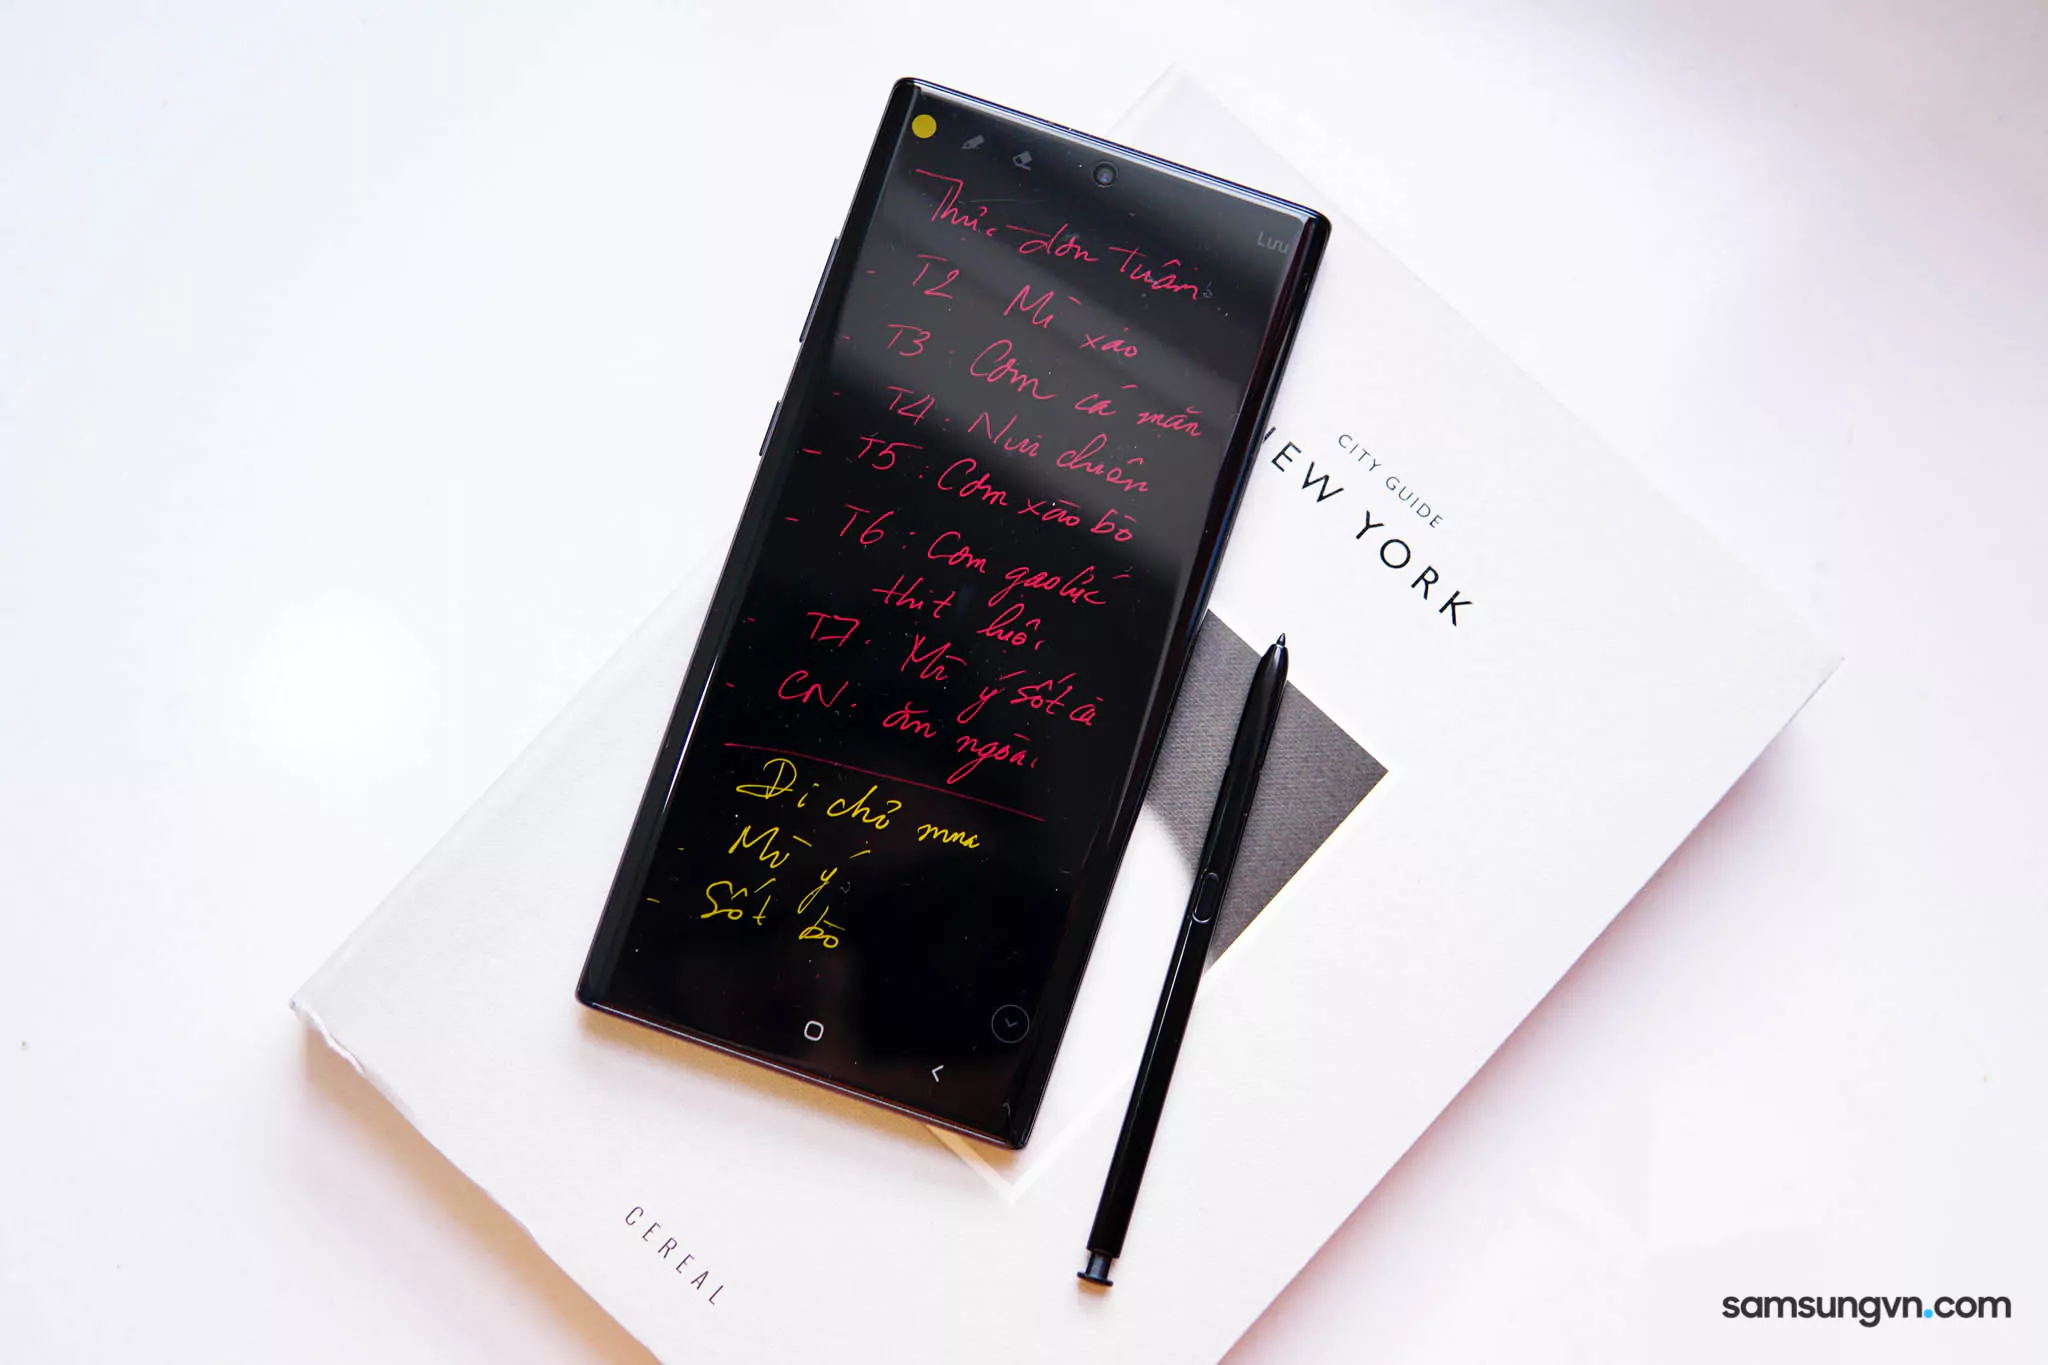 Lưu
Thực đơn tuần
- T2 Mì xào
- T3: Cơm cá mặn
- T4: Nui
- T5: Cơm xào bò
- T6: Cơm gạo lức
thịt luộc
- T7: Mì ý sốt cà
- CN: ăn ngoài
Đi chợ mua
- Mì ý
- Sốt bò
CITY GUIDE
NEW YORK
CEREAL
samsungvn.com